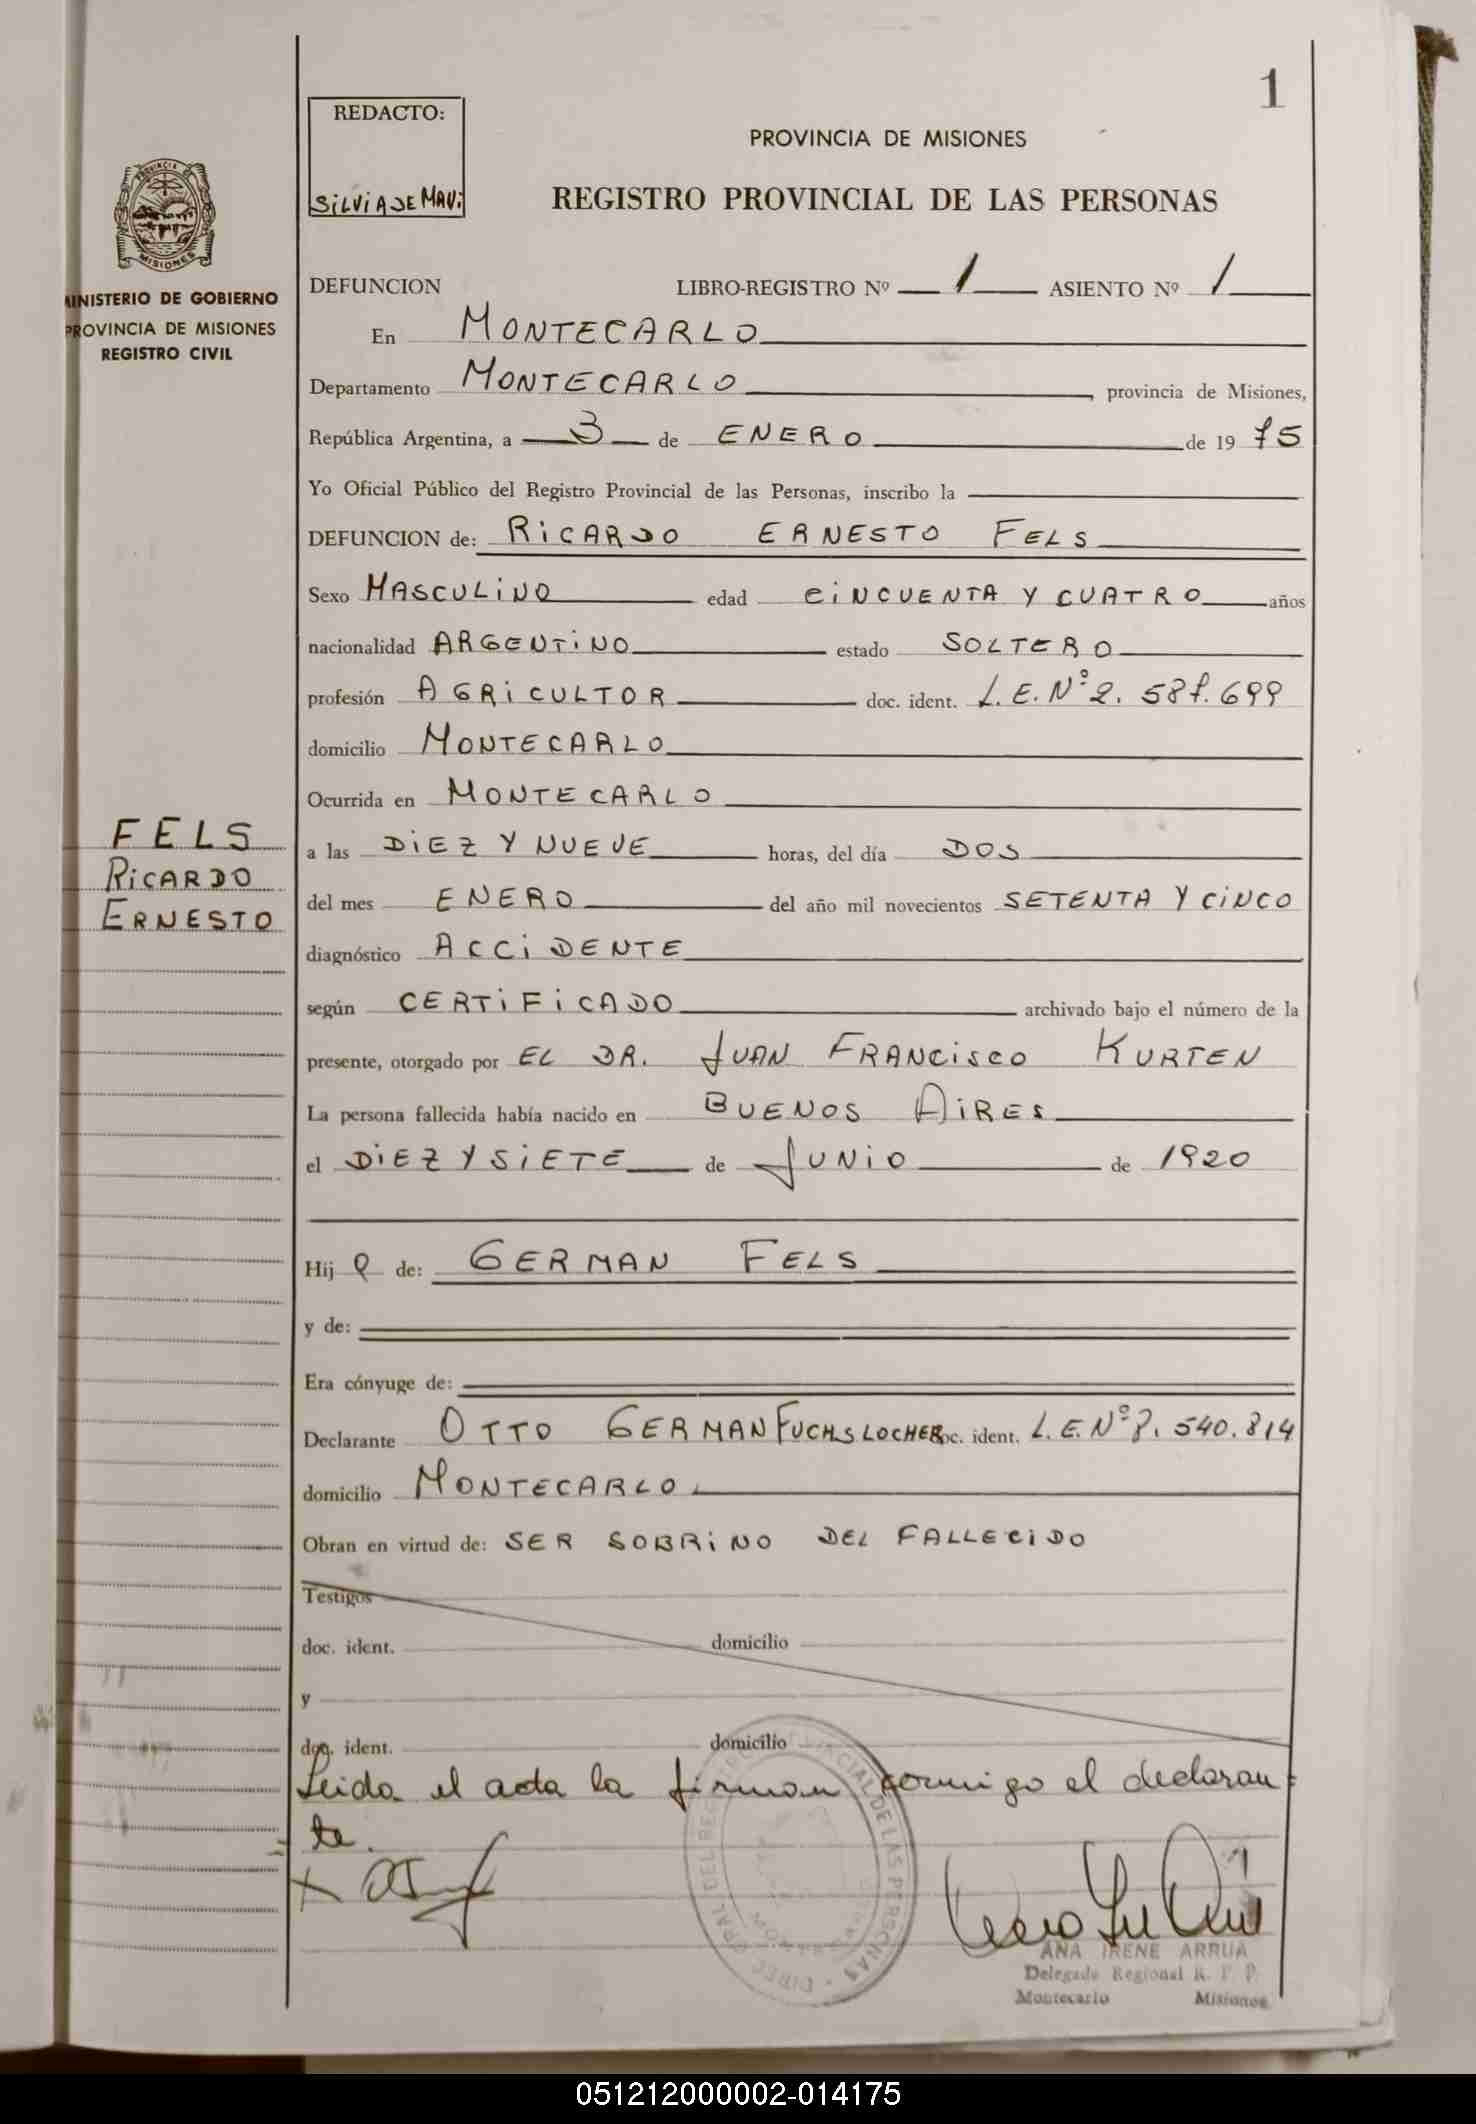 1
REDACTO:
SILVIA DE MAVI
PROVINCIA DE MISIONES
REGISTRO PROVINCIAL DE LAS PERSONAS
PROVINCIA DE
MISIONES
MINISTERIO DE GOBIERNO
PROVINCIA DE MISIONES
REGISTRO CIVIL
DEFUNCION LIBRO-REGISTRO Nº 1 ASIENTO Nº 1
En MONTECARLO
Departamento MONTECARLO, provincia de Misiones,
República Argentina, a 3 de ENERO de 1975
Yo Oficial Público del Registro Provincial de las Personas, inscribo la
DEFUNCION de: RICARDO ERNESTO FELS
Sexo MASCULINO edad CINCUENTA Y CUATRO años
nacionalidad ARGENTINO estado SOLTERO
profesión AGRICULTOR doc. ident. L.E. Nº 2.587.699
domicilio MONTECARLO
Ocurrida en MONTECARLO
FELS
RICARDO
ERNESTO
a las DIEZ Y NUEVE horas, del día DOS
del mes ENERO del año mil novecientos SETENTA Y CINCO
diagnóstico ACCIDENTE
según CERTIFICADO archivado bajo el número de la
presente, otorgado por EL DR. JUAN FRANCISCO KURTEN
La persona fallecida había nacido en BUENOS AIRES
el DIEZ Y SIETE de JUNIO de 1920
Hij o de: GERMAN FELS
y de:
Era cónyuge de:
Declarante OTTO GERMAN FUCHSLOCHER doc. ident. L.E. Nº 8.540.814
domicilio MONTECARLO
Obran en virtud de: SER SOBRINO DEL FALLECIDO
Testigos
doc. ident. domicilio
y
doc. ident. domicilio
Leida el acta la firman conmigo el declaran
te.
DEL REGISTRO PROVINCIAL DE LAS PERSONAS
MONTECARLO
ANA IRENE ARRUA
Delegada Regional R. P. P.
Montecarlo Misiones
051212000002-014175